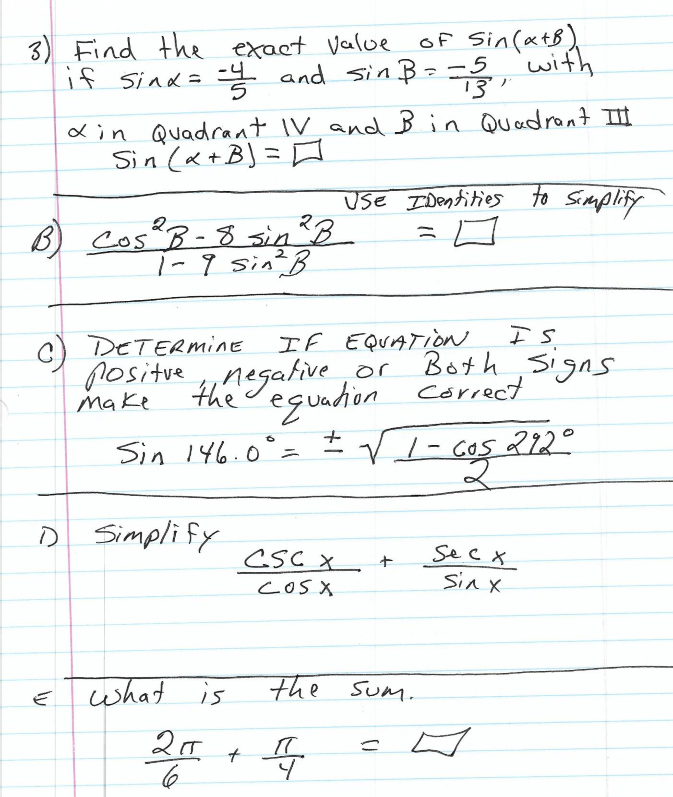 3) Find the exact value of sin(α+B)
if sinα = -4/5 and sin B = -5/13, with
α in Quadrant IV and B in Quadrant III
Sin (α + B) = □
Use IDentities to Simplify
B) (cos²B - 8 sin²B)/(1 - 9 sin²B) = □
C) DETERMINE IF EQUATION IS
positve, negative or Both signs
make the equation correct
Sin 146.0° = ± √(1 - cos 292°)/2
D Simplify
csc x/cos x + sec x/sin x
E what is the sum.
2π/6 + π/4 = □